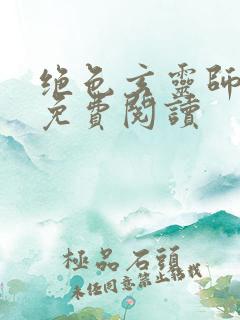 絕色玄靈師
免費閱讀
極品石頭
未任同意禁止轉載